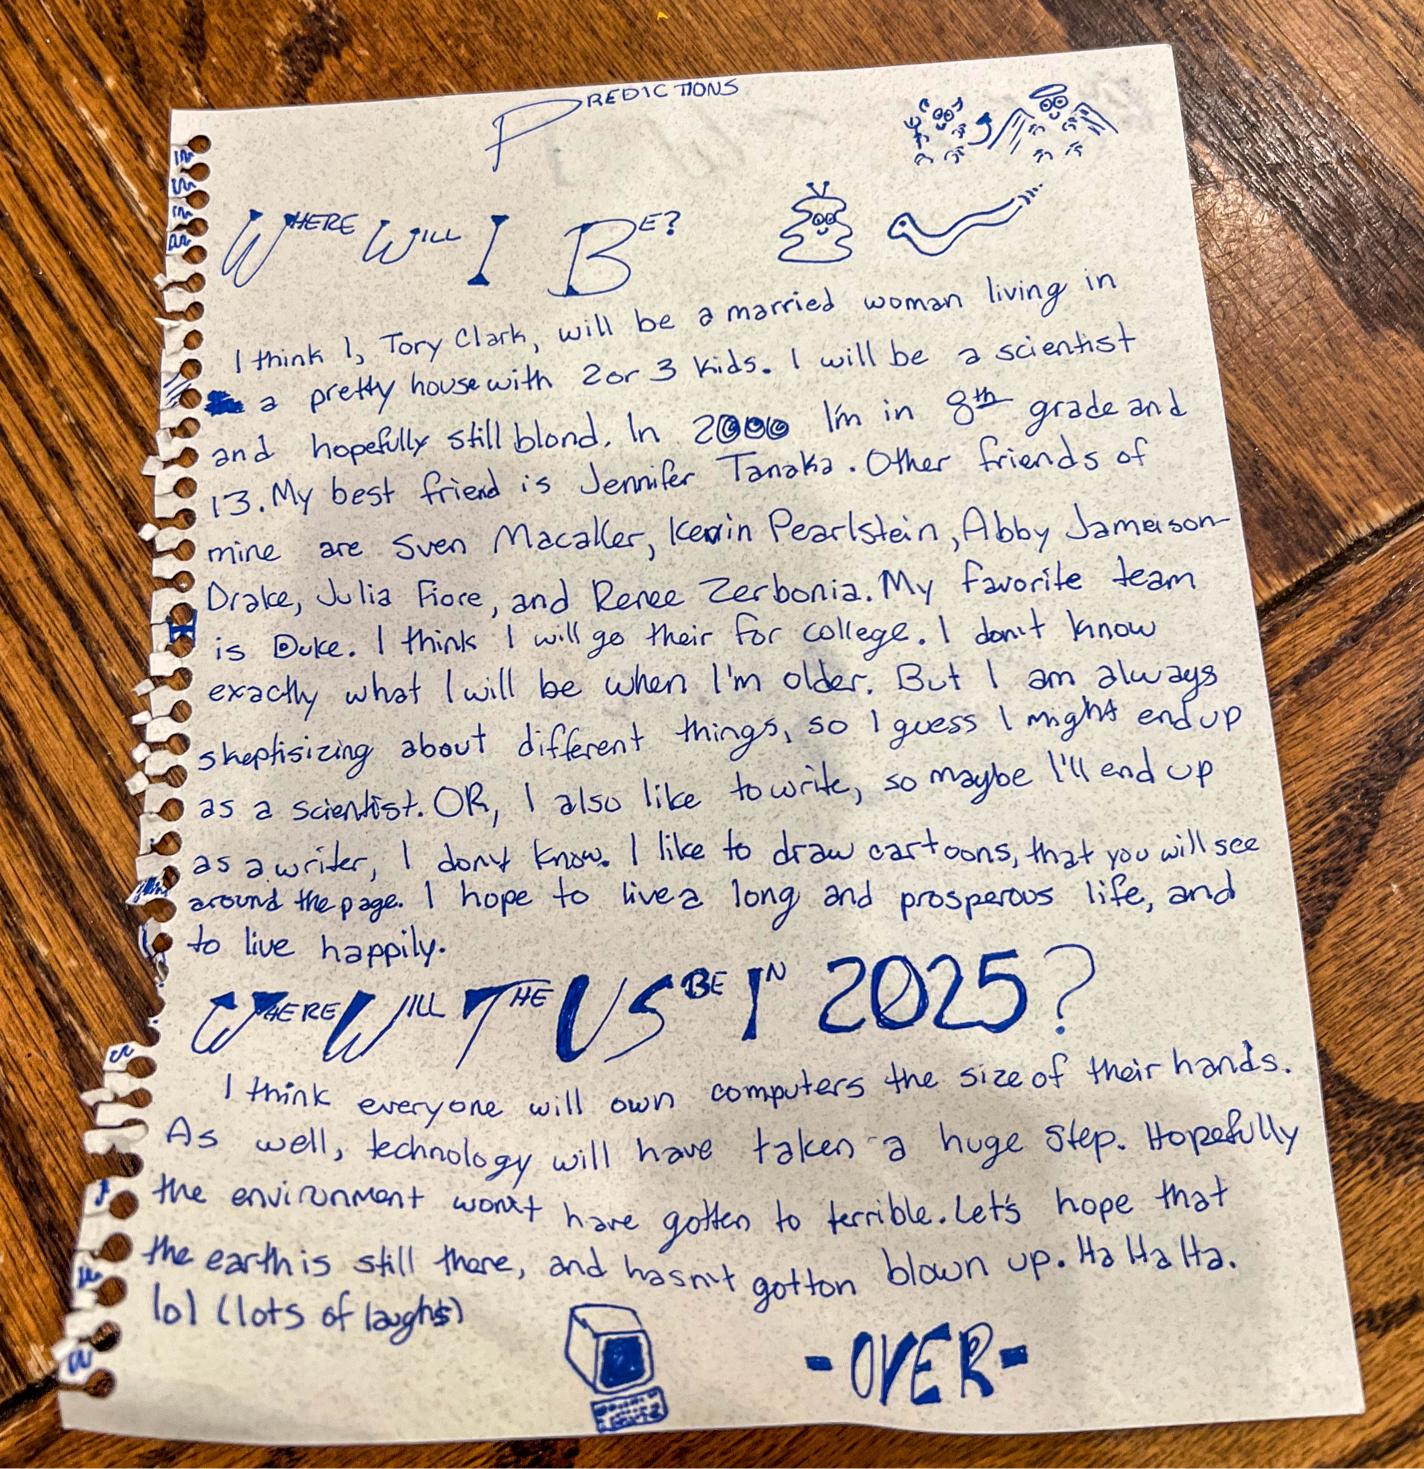 PREDICTIONS
WHERE WILL I BE?
I think I, Tory Clark, will be a married woman living in
a pretty house with 2 or 3 kids. I will be a scientist
and hopefully still blond. In 2000 I'm in 8th grade and
13. My best friend is Jennifer Tanaka. Other friends of
mine are Sven Macaller, Kevin Pearlstein, Abby Jameison-
Drake, Julia Fiore, and Renee Zerbonia. My favorite team
is Duke. I think I will go their for college. I don't know
exactly what I will be when I'm older. But I am always
skeptisizing about different things, so I guess I might end up
as a scientist. OR, I also like to write, so maybe I'll end up
as a writer, I don't know. I like to draw cartoons, that you will see
around the page. I hope to live a long and prosperous life, and
to live happily.
WHERE WILL THE US BE IN 2025?
I think everyone will own computers the size of their hands.
As well, technology will have taken a huge step. Hopefully
the environment won't have gotten to terrible. Let's hope that
the earth is still there, and hasn't gotton blown up. Ha Ha Ha.
lol (lots of laughs)
-OVER-